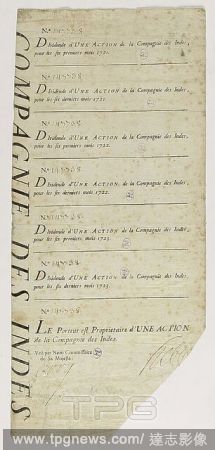 Dividende d'UNE ACTION de la Compagnie des Indes,
pour les six premiers mois 1721.
Dividende d'UNE ACTION de la Compagnie des Indes,
pour les six derniers mois 1721.
Dividende d'UNE ACTION de la Compagnie des Indes,
pour les six premiers mois 1722.
Dividende d'UNE ACTION de la Compagnie des Indes,
pour les six derniers mois 1722.
Dividende d'UNE ACTION de la Compagnie des Indes,
pour les six premiers mois 1723.
Dividende d'UNE ACTION de la Compagnie des Indes,
pour les six derniers mois 1723.
LE Porteur est Proprietaire d'UNE ACTION
de la Compagnie des Indes.
COMPAGNIE DES INDES
TPG
www.tpgnews.com/達志影像